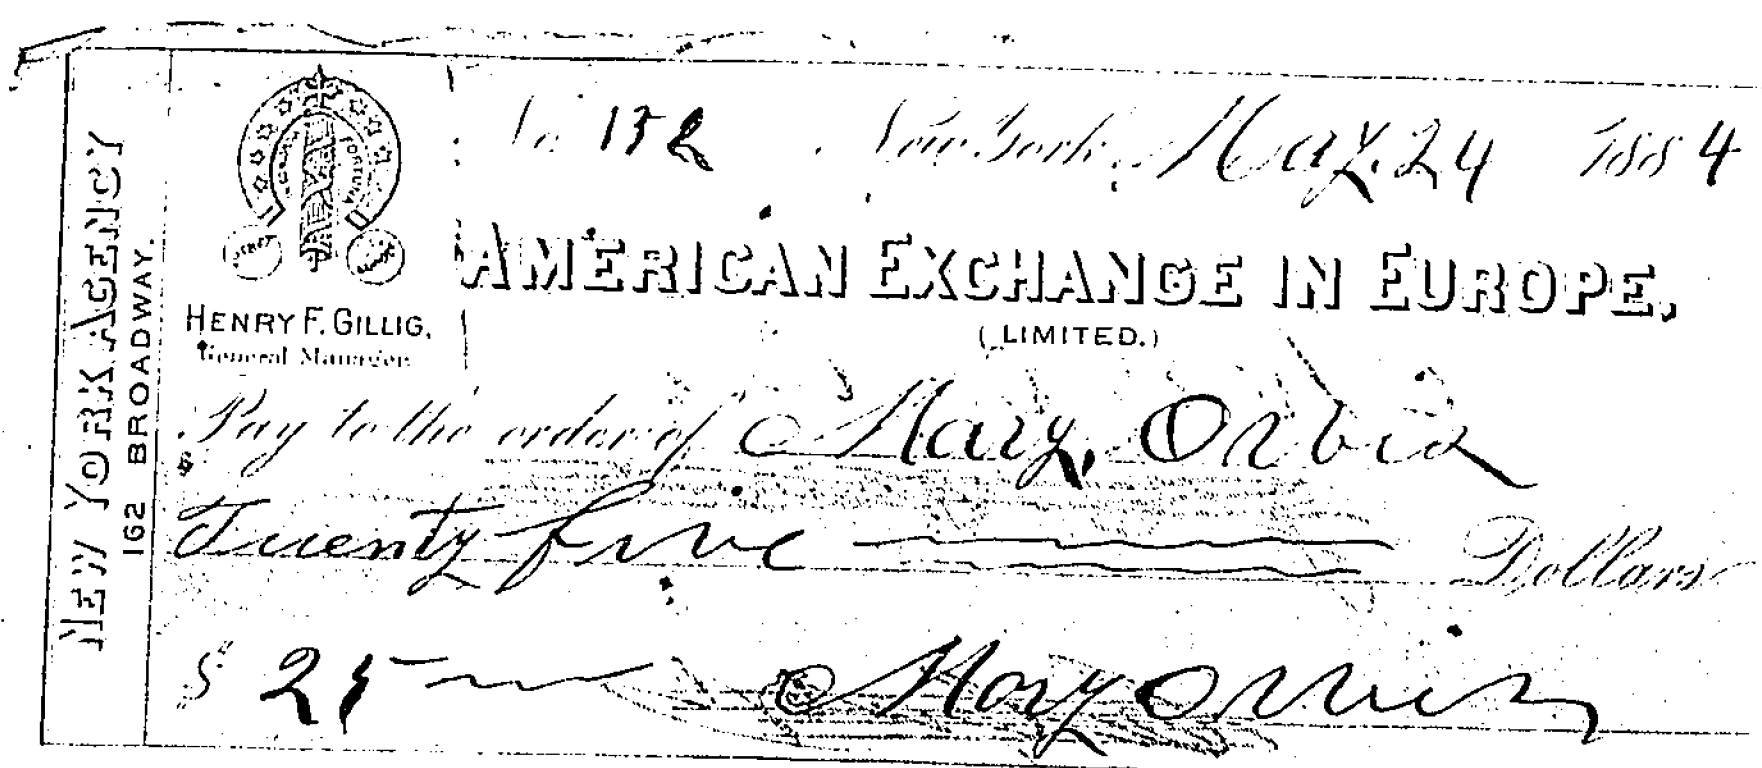 NEW YORK AGENCY
162 BROADWAY.
FORTUNA
HENRY F. GILLIG,
General Manager.
No 152 New York, May. 24 1884
AMERICAN EXCHANGE IN EUROPE,
(LIMITED.)
Pay to the order of Mary,
Twenty five Dollars
$ 25 Mary